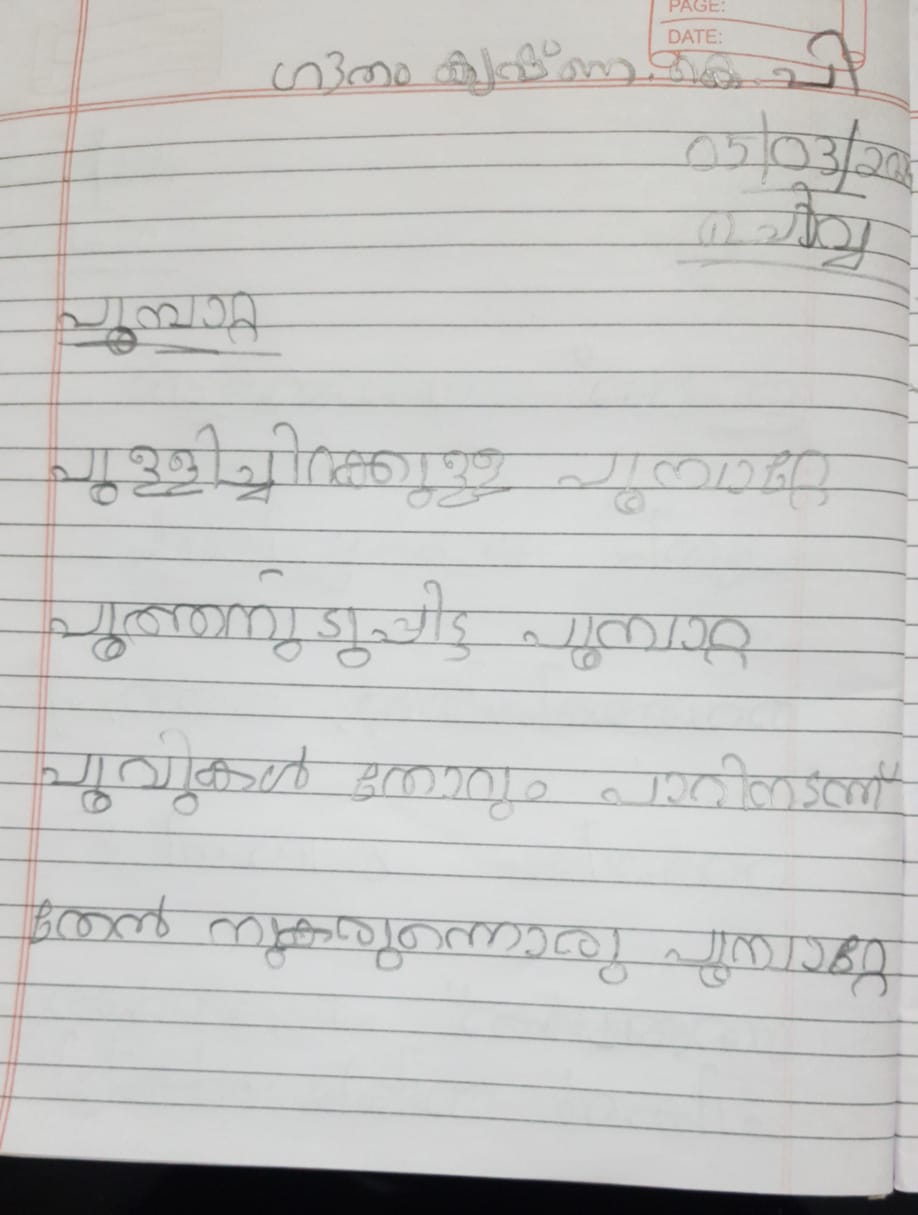 PAGE:
DATE:
ഗൗതം കൃഷ്ണ. കെ. പി
05/03/202
പൂമ്പാറ്റ
പുള്ളിച്ചിറകുള്ള പൂമ്പാറ്റേ
പുത്തനുടുപ്പിട്ട പൂമ്പാറ്റ
പൂവുകൾ തോറും പാറിനടന്ന്
തേൻ നുകരുന്നൊരു പൂമ്പാറ്റേ